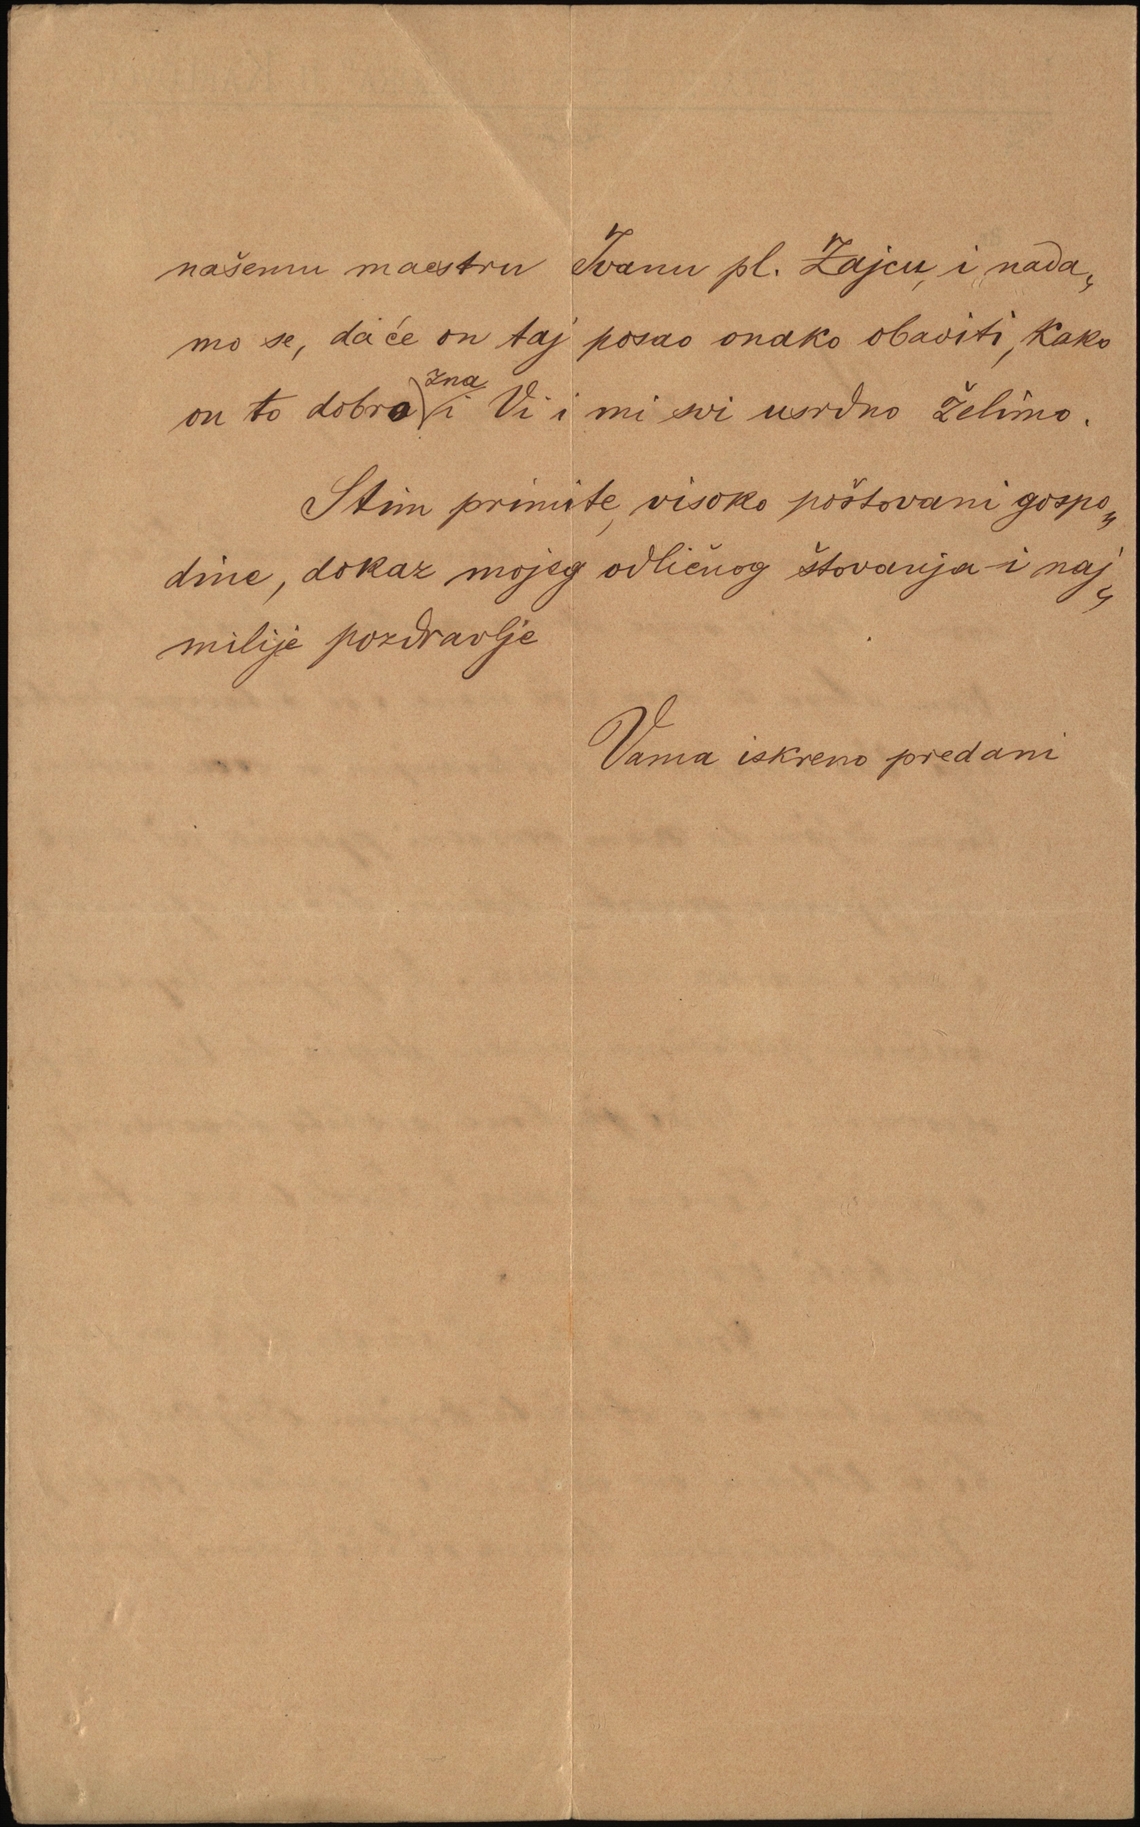 našemu maestru Ivanu pl. Zajcu, i nada„
mo se, da će on taj posao onako obaviti, kako
on to dobro zna i Vi i mi svi usrdno želimo.
Stim primite, visoko poštovani gospo„
dine, dokaz mojeg odličnog štovanja i naj„
milije pozdravlje
Vama iskreno predani